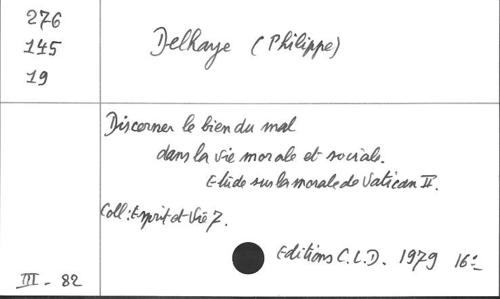 276
145
19
Delhaye (Philippe)
Discerner le bien du mal
dans la vie morale et sociale.
Etude sur la morale de Vatican II.
Coll: Esprit et Vie 7.
Editions C.L.D. 1979 16=
III - 82